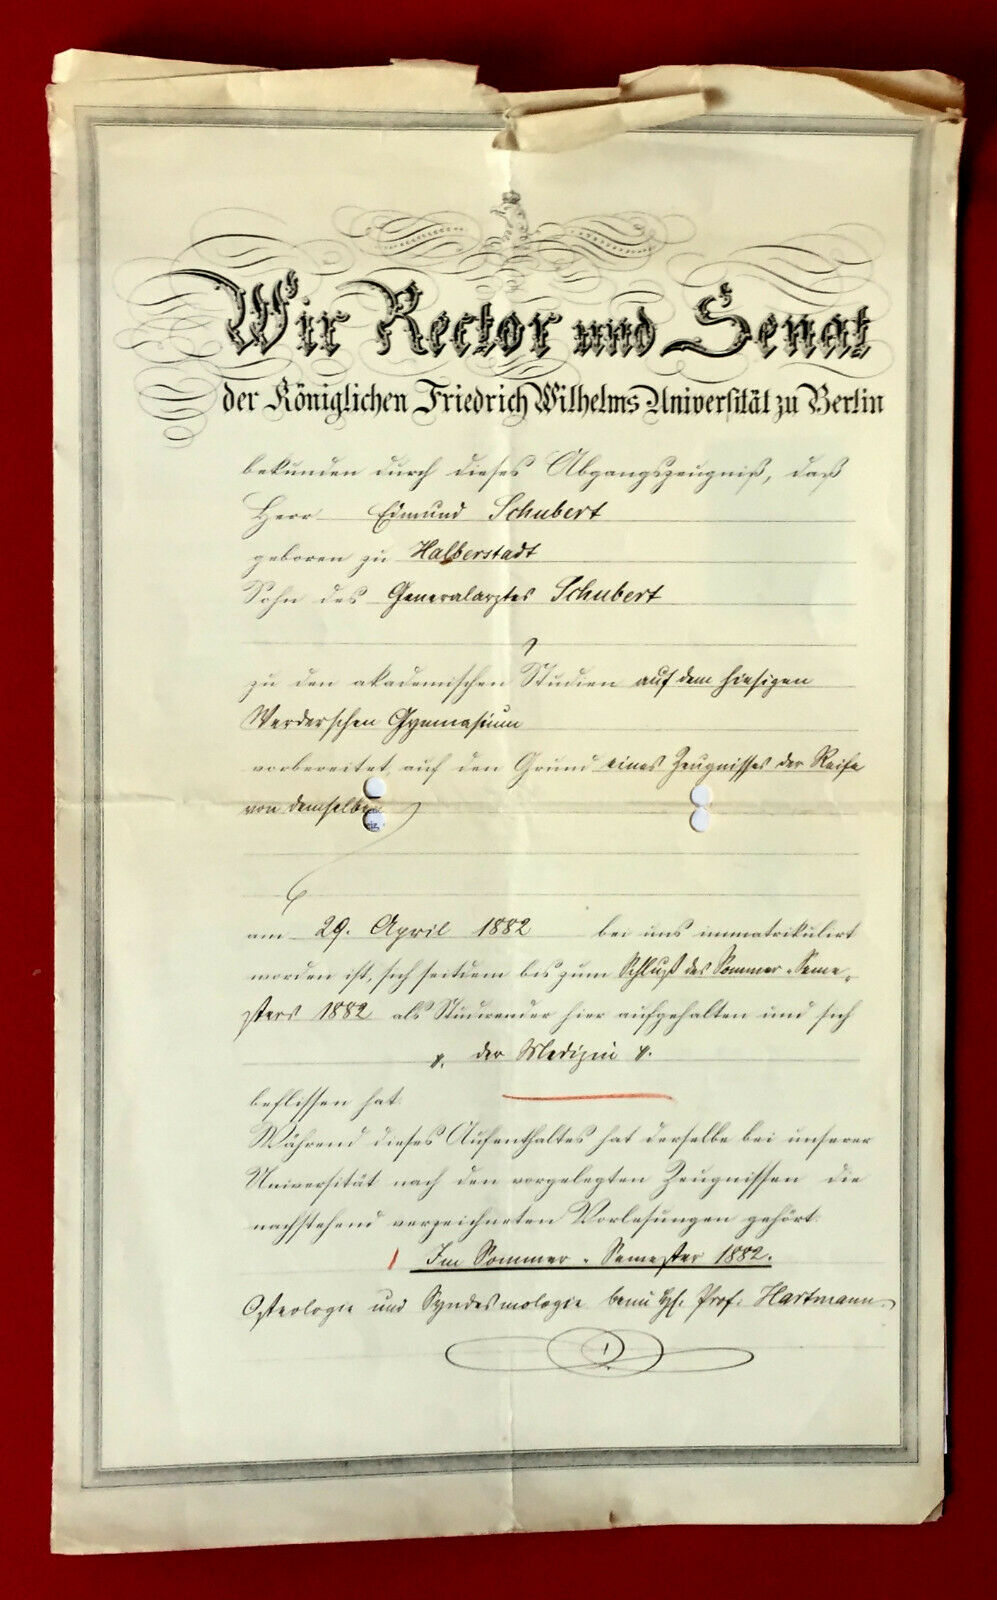 Wir Rector und Senat
der Königlichen Friedrich Wilhelms-Universität zu Berlin
bekunden durch dieses Abgangszeugniß, daß
Herr Edmund Schubert
geboren zu Halberstadt
Sohn des Generalarztes Schubert
zu den akademischen Studien auf dem hiesigen
Werderschen Gymnasium
vorbereitet, auf den Grund eines Zeugnisses der Reife
von demselben
am 29. April 1882 bei uns immatrikulirt
worden ist, sich seitdem bis zum Schluß des Sommer-Seme-
sters 1882 als Studirender hier aufgehalten und sich
der Medizin
beflissen hat.
Während dieses Aufenthaltes hat derselbe bei unserer
Universität nach den vorgelegten Zeugnissen die
nachstehend verzeichneten Vorlesungen gehört:
Im Sommer-Semester 1882.
Osteologie und Syndesmologie beim Prof. Hartmann